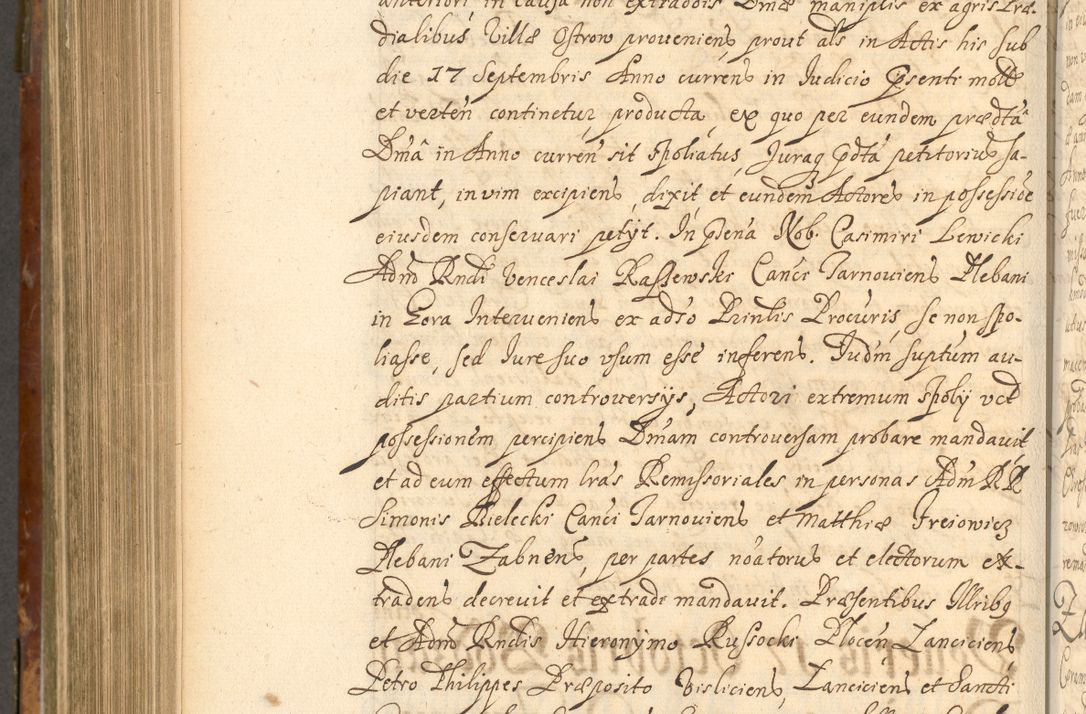 anteriori in causa non extradõis Dmæ maniplis ex agris Præ-
dialibus Villæ Ostrow proueniens prout als in Actis his sub
die 17 Septembris Anno currens in Iudicio psenti mott
et verteñ continetur producta, ex quo per eundem prædtã
Dmã in Anno curreñ sit spoliatus, Iuraq pdtâ petitoriũ sa-
piant, in vim excipiens, dixit et eundem Actorẽ in possessiõe
eiusdem conseruari petÿt. In pñna Nob. Casimiri Lewicki
Admõ Rndi Venceslai Raszewski Canci Tarnouiens Plebani
in Gora Interueniens ex adso Prinlis Procuris, se non spo-
liasse, sed Iure suo vsum esse inferens. Iudm suptum au-
ditis partium controuersÿs, Actori extremum spolÿ vct
possessionem percipiens Dmam controuersam probare mandauit
et ad eum effectum lras Remissoriales in personas Adm RR
Simonis Bielecki Canci Tarnouiens et Matthiæ Ireiowicz
Plebani Zabnens, per partes noatorũ et electorum ex-
tradens decreuit et extradi mandauit. Præsentibus Illribg
et Admõ Rndis Hieronÿmo Russocki Ploceñ Lanciciens
Petro Philippes Præposito Visliciens, Lanciciens et Sancti